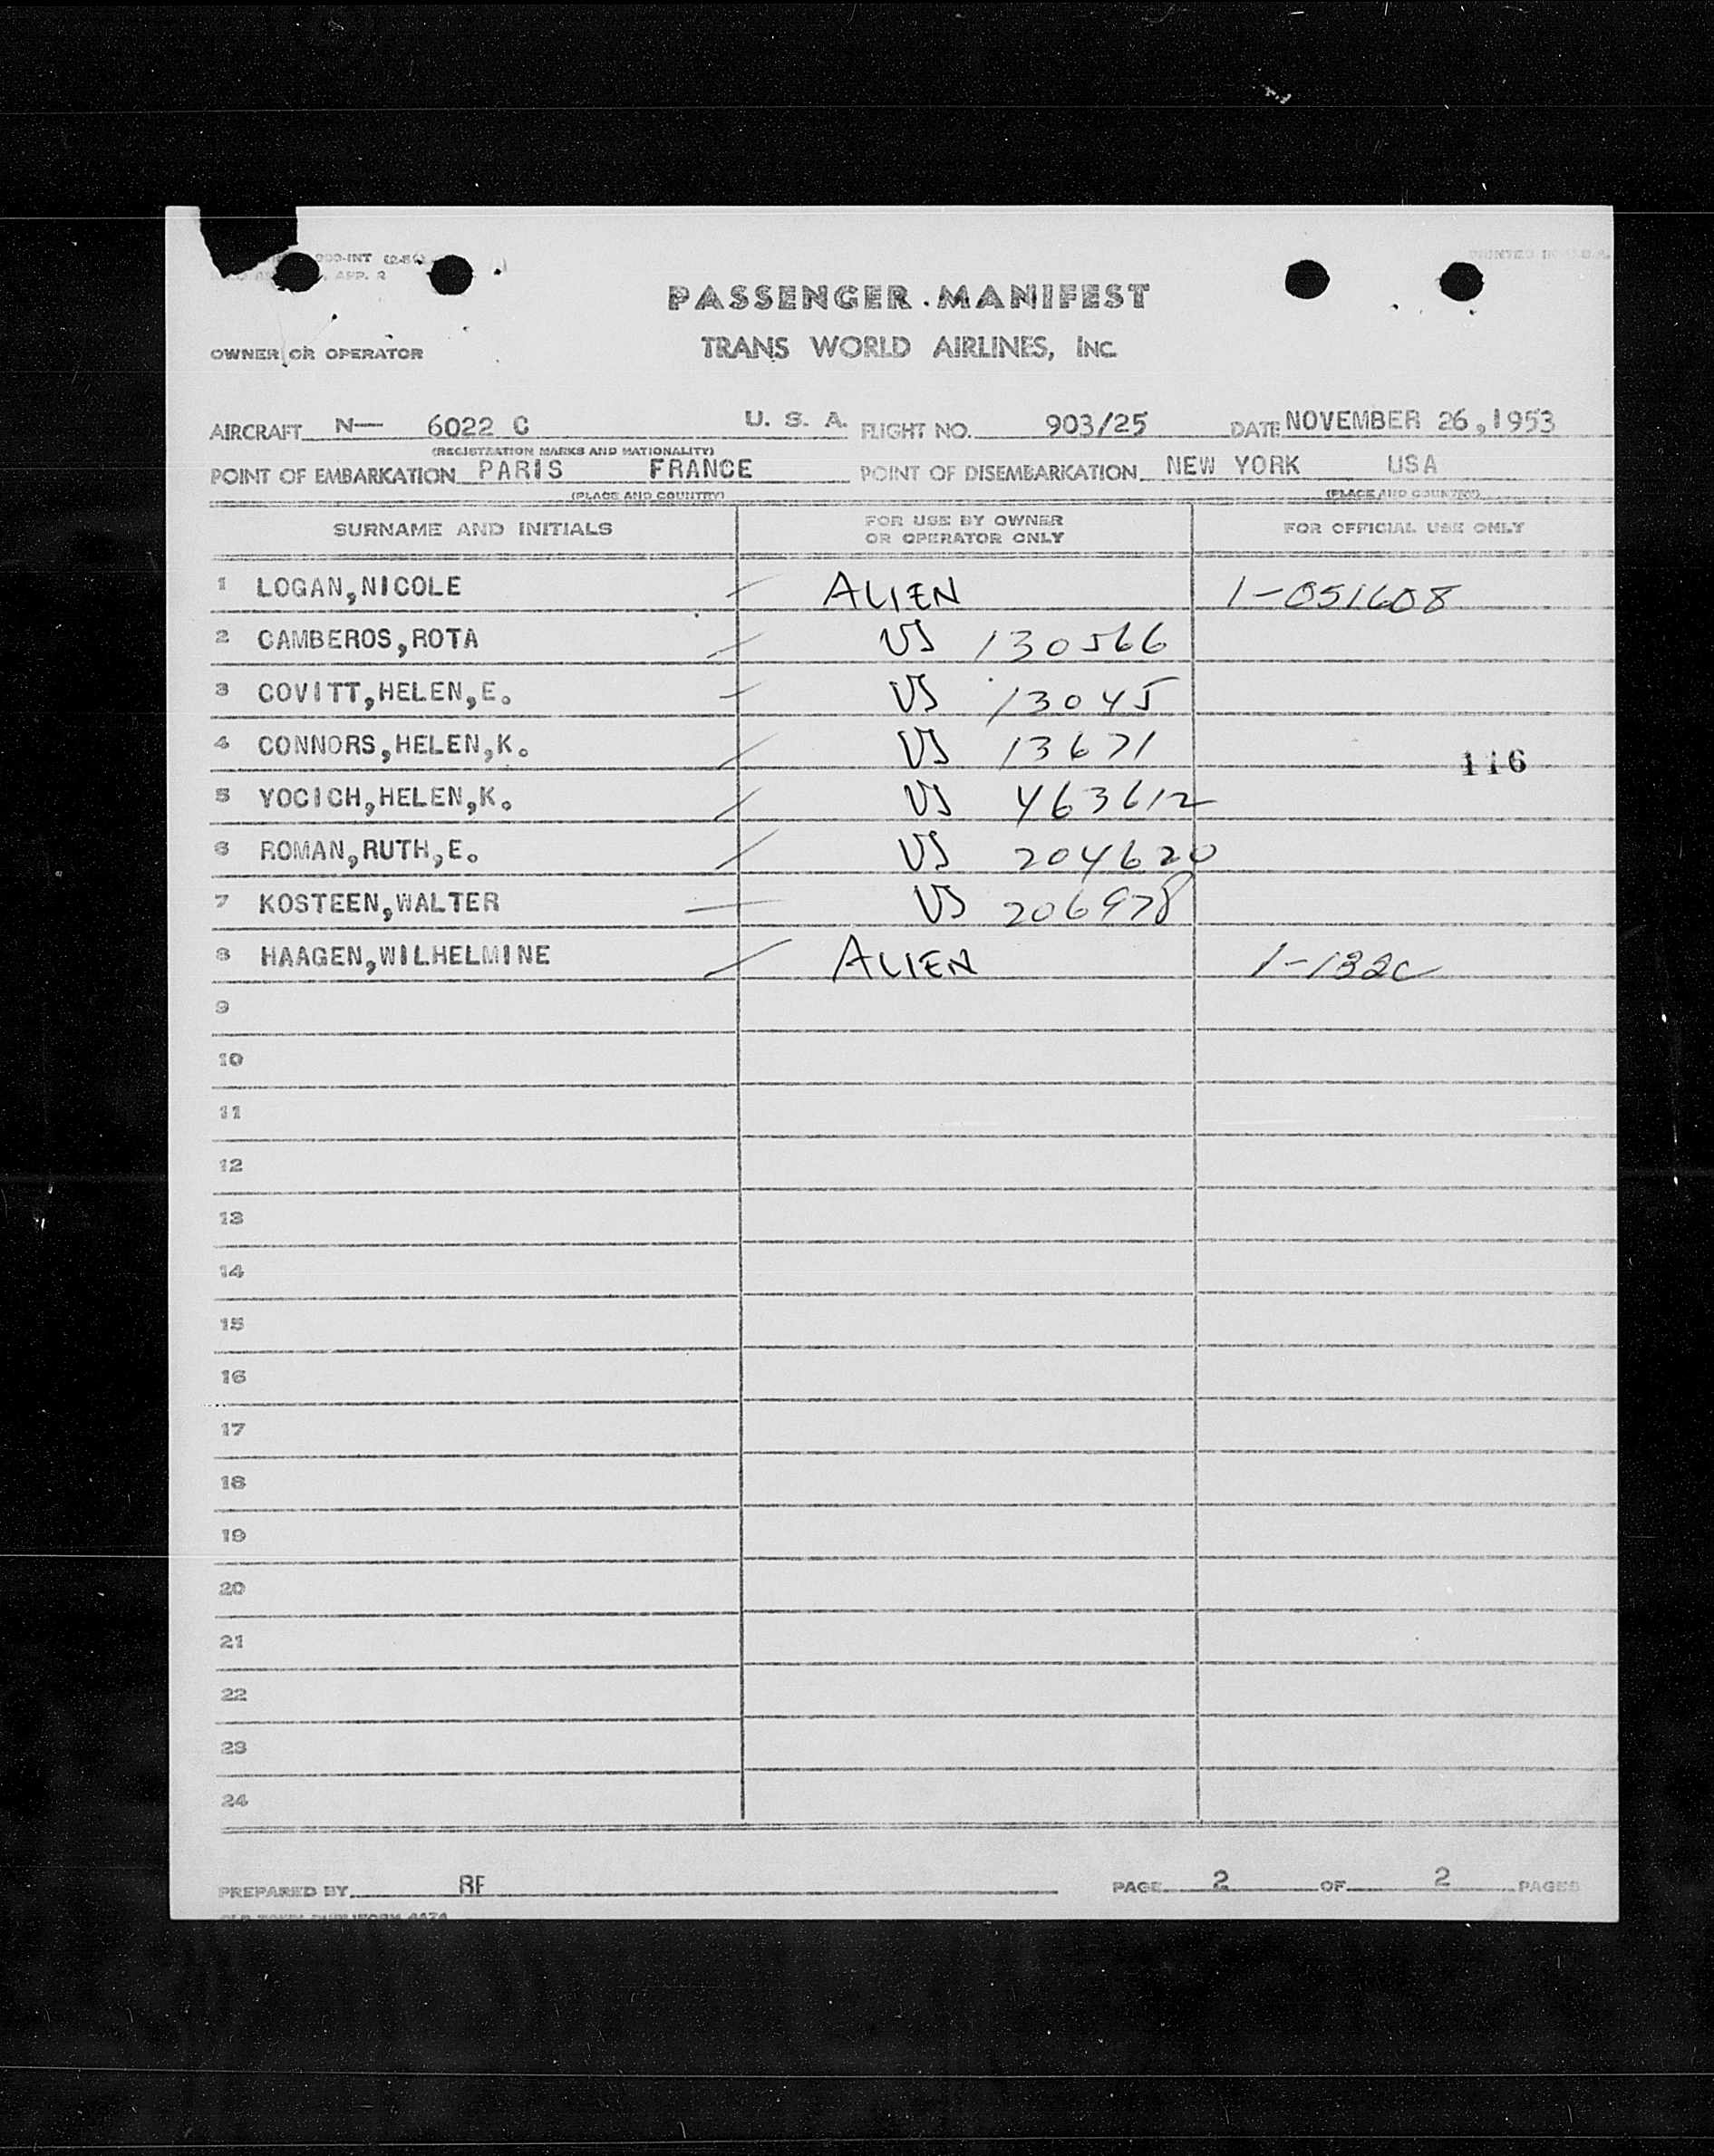 000-INT (2-51)
, APP. 2
PRINTED IN U.S.A.
PASSENGER MANIFEST
OWNER OR OPERATOR TRANS WORLD AIRLINES, INC.
AIRCRAFT N— 6022 C U. S. A. FLIGHT NO. 903/25 DATE NOVEMBER 26,1953
(REGISTRATION MARKS AND NATIONALITY)
POINT OF EMBARKATION PARIS FRANCE POINT OF DISEMBARKATION NEW YORK USA
(PLACE AND COUNTRY) (PLACE AND COUNTRY)
SURNAME AND INITIALS FOR USE BY OWNER OR OPERATOR ONLY FOR OFFICIAL USE ONLY
1 LOGAN,NICOLE ALIEN 1-051608
2 CAMBEROS,ROTA US 130566
3 COVITT,HELEN,E. US 13045
4 CONNORS,HELEN,K. US 13671
116
5 YOCICH,HELEN,K. US 463612
6 ROMAN,RUTH,E. US 204620
7 KOSTEEN,WALTER US 206978
8 HAAGEN,WILHELMINE ALIEN
9
10
11
12
13
14
15
16
17
18
19
20
21
22
23
24
PREPARED BY RF PAGE 2 OF 2 PAGES